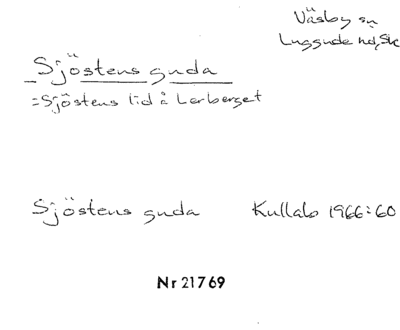 Väsby sn
Luggude hd, Sk
Sjöstens guda
=Sjöstens lid å Lerberget
Sjöstens guda Kullabo 1966:60
Nr 21769